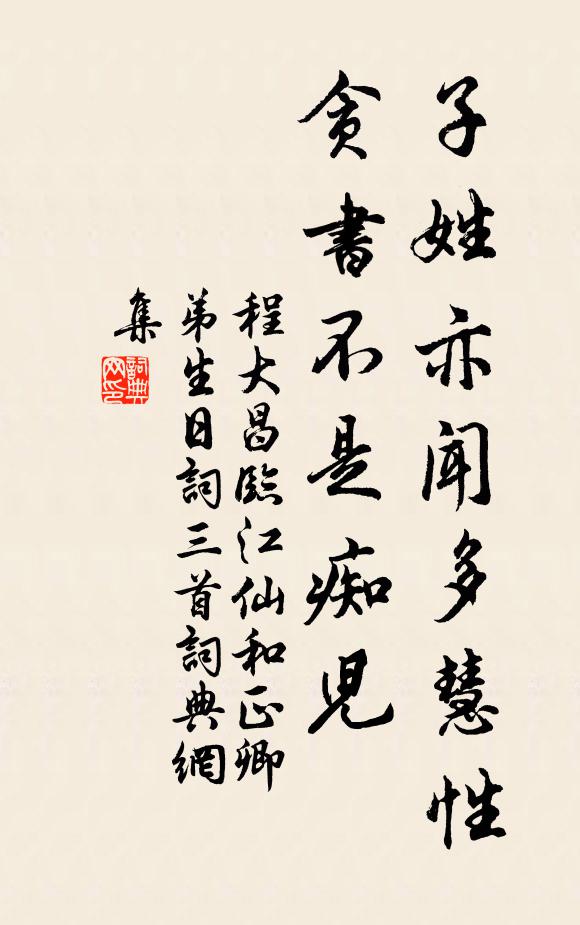 子姓亦聞多慧性
貪書不是痴児
程大昌臨江仙和正卿
弟生日詞三首詞典網
集
詞典
网印